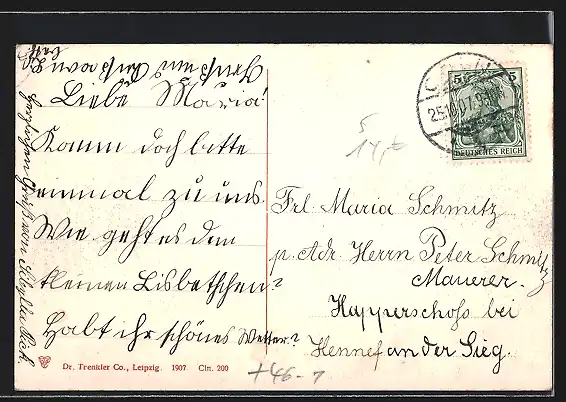 Liebe Maria!
Komm doch bitte
einmal zu uns.
Wie geht es dem
kleinen Lisbethchen?
Habt ihr schönes Wetter?
Herzlichen Gruß von
Frl. Maria Schmitz
p. Adr. Herrn Peter Schmitz
Maurer.
Happerschoß bei
Hennef an der Sieg.
5 5
DEUTSCHES REICH
25.10.07
5
14,-
Dr. Trenkler Co., Leipzig. 1907 Cln. 200
+46-7